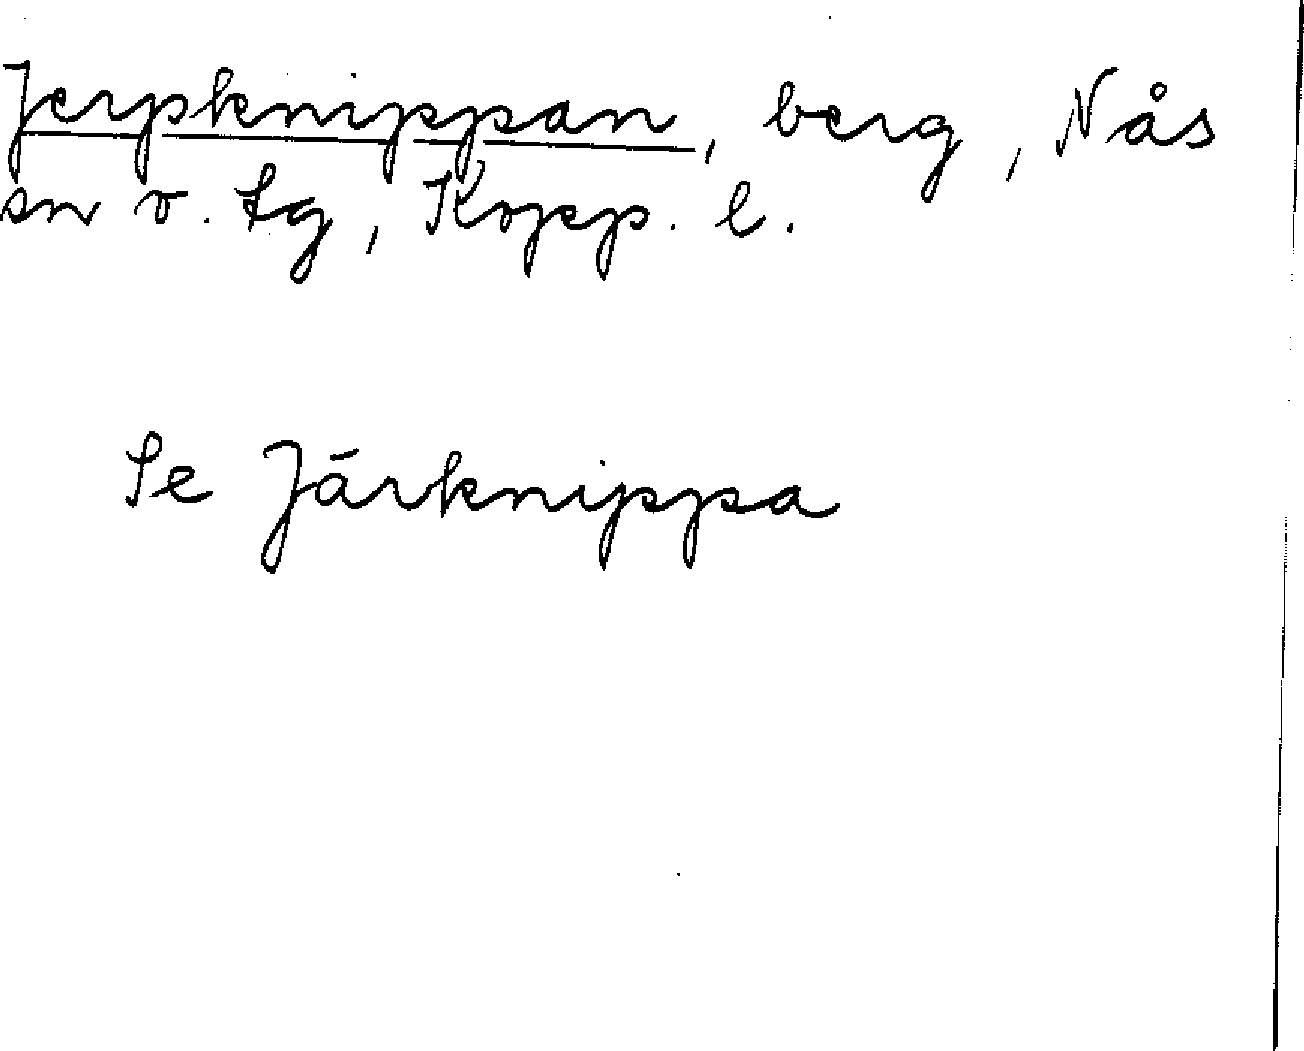 Jerpknippan, berg, Nås
sn o. tg, Kopp. l.
Se Järknippa